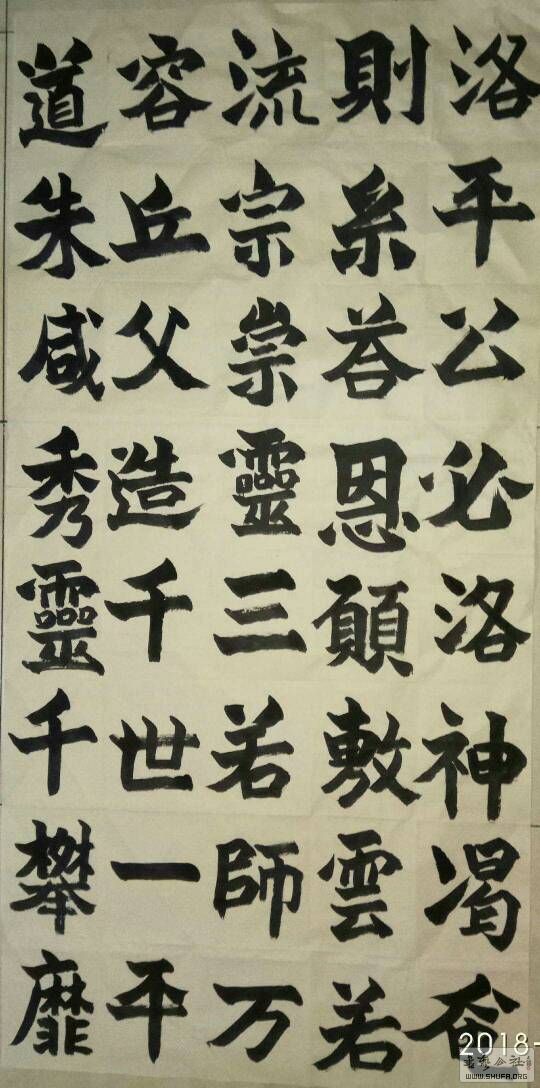 洛平公必洛神渴
則系荅恩願敷雲若
流宗崇靈三若師万
容丘父造千世一平
道朱咸秀靈千攀靡
2018-
WWW.SHUFA.ORG